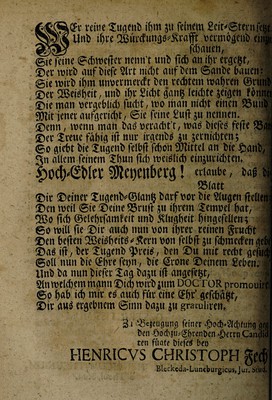 WEr reine Tugend ihm zu seinem Leit-Stern setzt
Und ihre Würckungs-Krafft vermögend einzu
schauen,
Sie seine Schwester nennt und sich an ihr ergezt,
Der wird auf diese Art nicht auf dem Sande bauen:
Sie wird ihm unvermerckt den rechten wahren Grund
Der Weisheit, und ihr Licht gantz leichte zeigen können
Die man vergeblich sucht, wo man nicht einen Bund
Mit jener aufgericht, Sie seine Lust zu nennen.
Denn, wenn man das veracht't, was dieses feste Ba
Der Treue fähig ist nur irgends zu zernichten;
So giebt die Tugend selbst schon Mittel an die Hand,
In allem seinem Thun sich weislich einzurichten.
Hoch-Edler Meyenberg! erlaube, daß di
Blatt
Dir Deiner Tugend-Glantz darf vor die Augen stellen
Den weil Sie Deine Brust zu ihrem Tempel hat,
Wo sich Gelehrsamkeit und Klugheit hingesellen;
So will sie Dir auch nun von ihrer reinen Frucht
Den besten Weisheits-Kern von selbst zu schmecken geb
Das ist, der Tugend Preis, den Du mit recht gesucht
Soll nun die Ehre seyn, die Crone Deinem Leben.
Und da nun dieser Tag dazu ist angesetzt,
An welchem mann Dich wird zum DOCTOR promovir
So hab ich mir es auch für eine Ehr' geschäzt,
Dir aus ergebnem Sinn dazu zu gratuliren.
Zu Bezeugung seiner Hoch-Achtung geg
den Hochzu-Ehrenden-Herrn Candid
ten fügte dieses bey
HENRICVS CHRISTOPH Fech
Bleckeda-Luneburgicus, Jur. Stud.